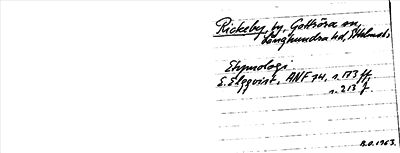 Rickeby, by, Gottröra sn,
Långhundra hd, Sthlms l.
Etymologi
E. Elgqvist, ANF 74, s. 173 ff,
s. 213 f.
B.O. 1963.